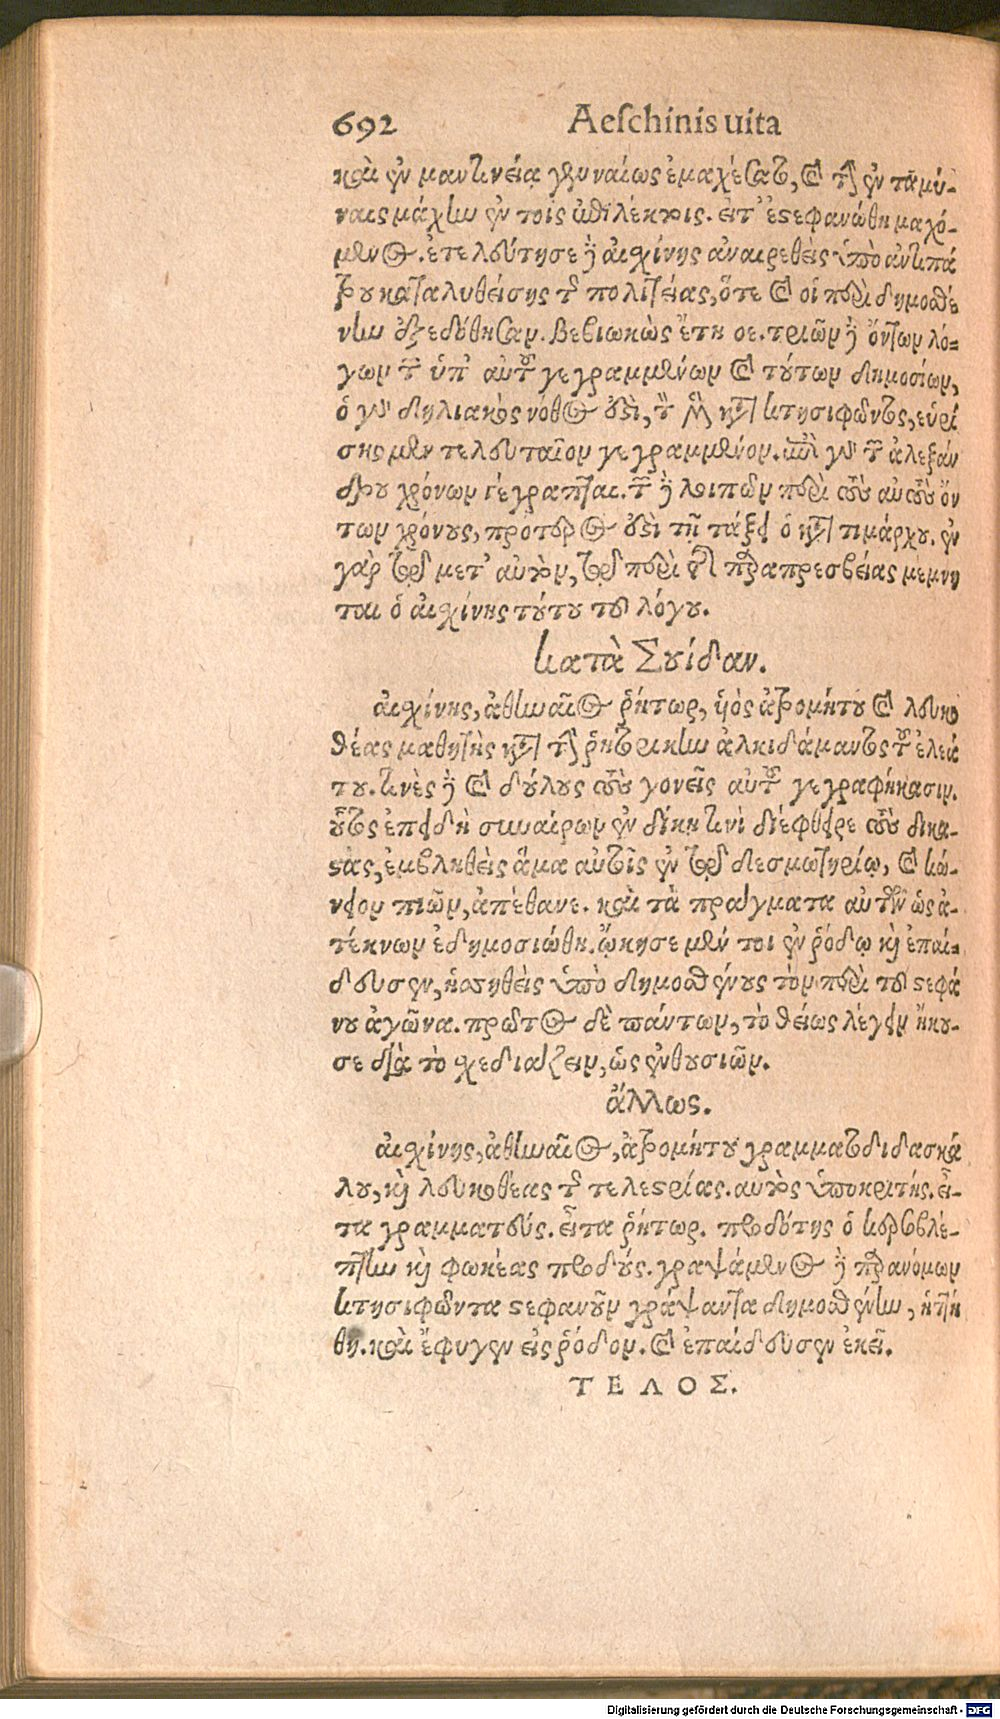 692 Aeschinis uita
καὶ ἐν μαντινείᾳ γενναίως ἐμαχέσατο, καὶ τὴν ἐν ταμύ-
ναις μάχην ἐν τοῖς ἐπιλέκτοις. εἶτ' ἐστεφανώθη μαχό-
μενος. ἐτελεύτησε δὲ αἰσχίνης ἀναιρεθεὶς ὑπὸ ἀντιπά
τρου καταλυθείσης τῆς πολιτείας, ὅτε καὶ οἱ περὶ δημοσθέ
νην ἐξεδόθησαν. βεβιωκὼς ἔτη οε. τριῶν δὲ ὄντων λό-
γων τῶν ὑπ' αὐτοῦ γεγραμμένων καὶ τούτων δημοσίων,
ὁ γὰρ δηλιακὸς νόθος ἐστὶ, τὸν μὲν κατὰ κτησιφῶντος, εὑρί
σκομεν τελευταῖον γεγραμμένον. ἐπὶ γὰρ τῶν ἀλεξάν
δρου χρόνων γέγραπται. τῶν δὲ λοιπῶν περὶ τοὺς αὐτοὺς ὄν
των χρόνους, πρότερος ἐστὶ τῇ τάξει ὁ κατὰ τιμάρχου. ἐν
γὰρ τῷ μετ' αὐτὸν, τῷ περὶ τῆς παραπρεσβείας μέμνη
ται ὁ αἰσχίνης τούτου τοῦ λόγου.
κατὰ Σουίδαν.
αἰσχίνης, ἀθηναῖος ῥήτωρ, ὑὸς ἀτρομήτου καὶ λευκο
θέας μαθητὴς κατὰ τὴν ῥητορικὴν ἀλκιδάμαντος τοῦ ἐλεά
του. τινὲς δὲ καὶ δούλους τοὺς γονεῖς αὐτοῦ γεγραφήκασιν.
οὗτος ἐπειδὴ συναίρων ἐν δίκῃ τινὶ διέφθειρε τοὺς δικα-
στὰς, ἐμβληθεὶς ἅμα αὐτοῖς ἐν τῷ δεσμωτηρίῳ, καὶ κώ-
νειον πιὼν, ἀπέθανε. καὶ τὰ πράγματα αὐτῶν ὡς ἀ-
τέκνων ἐδημοσιώθη. ᾤκησε μέν τοι ἐν ῥόδῳ καὶ ἐπαί-
δευσεν, ἡττηθεὶς ὑπὸ δημοσθένους τὸν περὶ τοῦ στεφά
νου ἀγῶνα. πρῶτος δὲ πάντων, τὸ θείως λέγειν ἤκου-
σε διὰ τὸ σχεδιάζειν, ὡς ἐνθουσιῶν.
ἄλλως.
αἰσχίνης, ἀθηναῖος, ἀτρομήτου γραμματοδιδασκά
λου, καὶ λευκοθέας τῆς τελεστρίας. αὐτὸς ὑποκριτής. εἶ-
τα γραμματεύς. εἶτα ῥήτωρ. προδότης ὁ κερσοβλέ-
πτην καὶ φωκέας προδούς. γραψάμενος δὲ παρανόμων
κτησιφῶντα στεφανοῦν γράψαντα δημοσθένην, ἡττή
θη. καὶ ἔφυγεν εἰς ῥόδον. καὶ ἐπαίδευσεν ἐκεῖ.
ΤΕΛΟΣ.
Digitalisierung gefördert durch die Deutsche Forschungsgemeinschaft - DFG